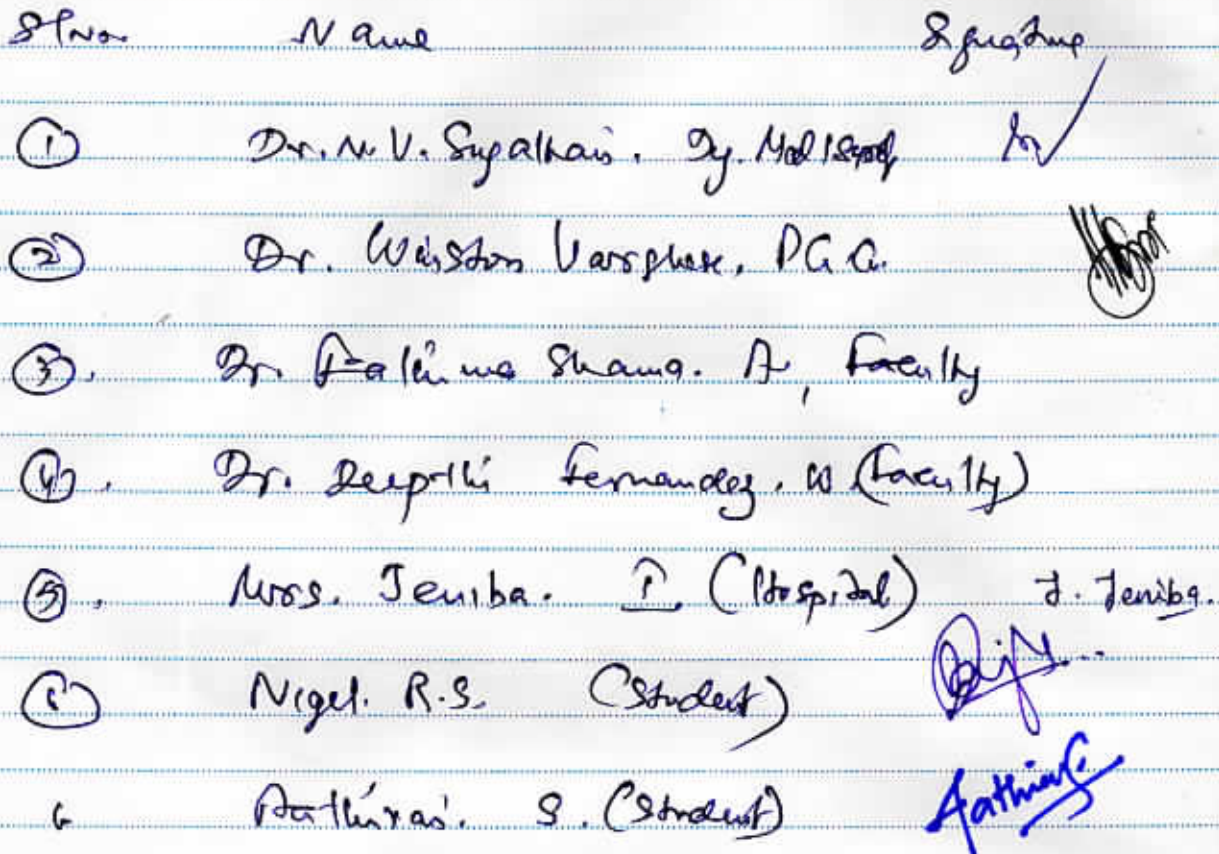 Sl No. Name Signature
① Dr. N. V. Sugathan. Dy. Med
② Dr. Winston Varghese, PG
③. Dr. Fathima Shama. A, Faculty
④. Dr. Deepthi Fernandez. W (Faculty)
⑤. Mrs. Jeniba. I. (Hospital) J. Jeniba.
⑥ Nigel. R.S. (Student)
Aathirai. S. (Student)